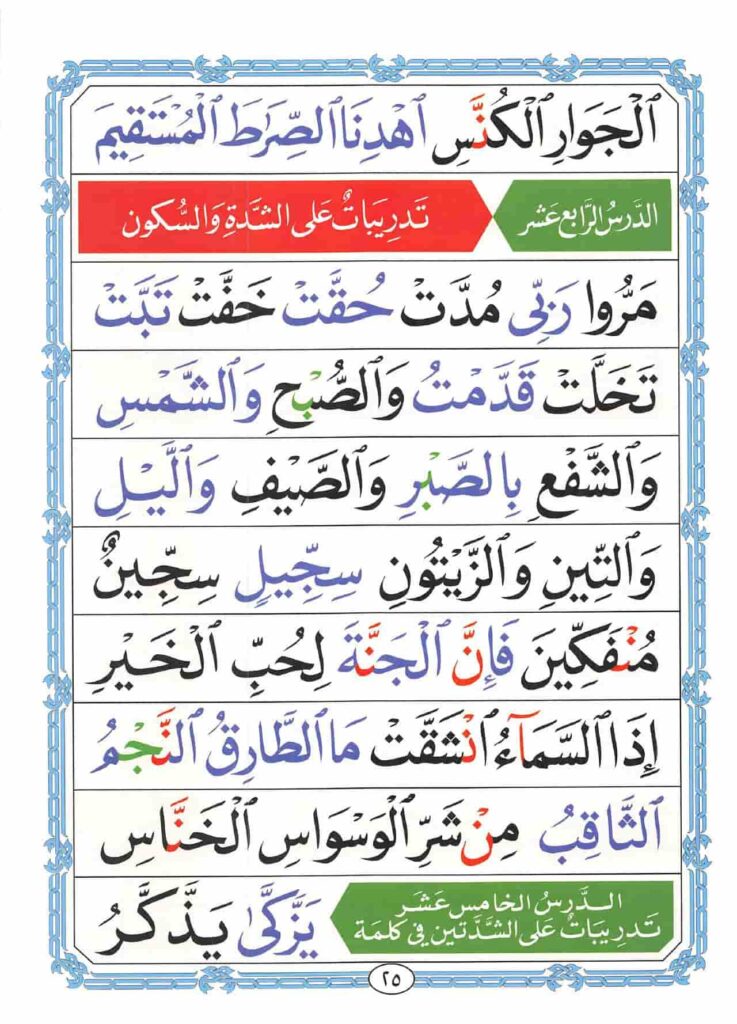 ٱلْجَوَارِ ٱلْكُنَّسِ ٱهْدِنَا ٱلصِّرَٰطَ ٱلْمُسْتَقِيمَ
الدَّرسُ الرَّابِع عَشَر تَدرِيبَاتٌ عَلى الشَّدَّةِ وَالسُّكون
مَرُّوا رَبِّى مُدَّتْ حُقَّتْ خَفَّتْ تَبَّتْ
تَخَلَّتْ قَدَّمْتُ وَٱلصُّبْحِ وَٱلشَّمْسِ
وَٱلشَّفْعِ بِٱلصَّبْرِ وَٱلصَّيْفِ وَٱلَّيْلِ
وَٱلتِّينِ وَٱلزَّيْتُونِ سِجِّيلٍ سِجِّينٌ
مُنْفَكِّينَ فَإِنَّ ٱلْجَنَّةَ لِحُبِّ ٱلْخَيْرِ
إِذَا ٱلسَّمَآءُ ٱنْشَقَّتْ مَا ٱلطَّارِقُ ٱلنَّجْمُ
ٱلثَّاقِبُ مِنْ شَرِّ ٱلْوَسْوَاسِ ٱلْخَنَّاسِ
الدَّرسُ الخامِس عَشَر
تَدرِيبَاتٌ عَلى الشَّدَّتين فِي كلِمَة
يَزَّكَّىٰ يَذَّكَّرُ
٢٥